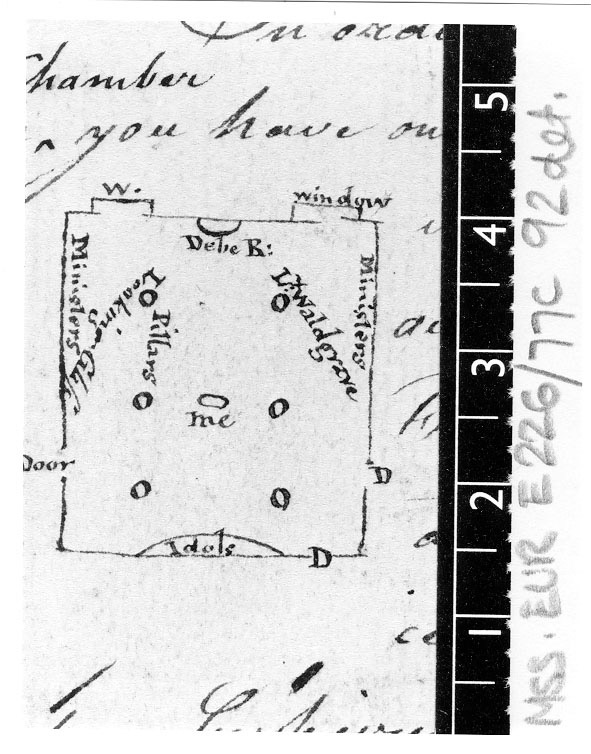 In
Chamber
you have
W.
window
Debe R:
Ministers
Looking Glass
Pillars
Lt Waldgrave
Ministers
me
Door
D
Idols
D
5
4
3
2
1
MSS. EUR E 226/77C 92 det.